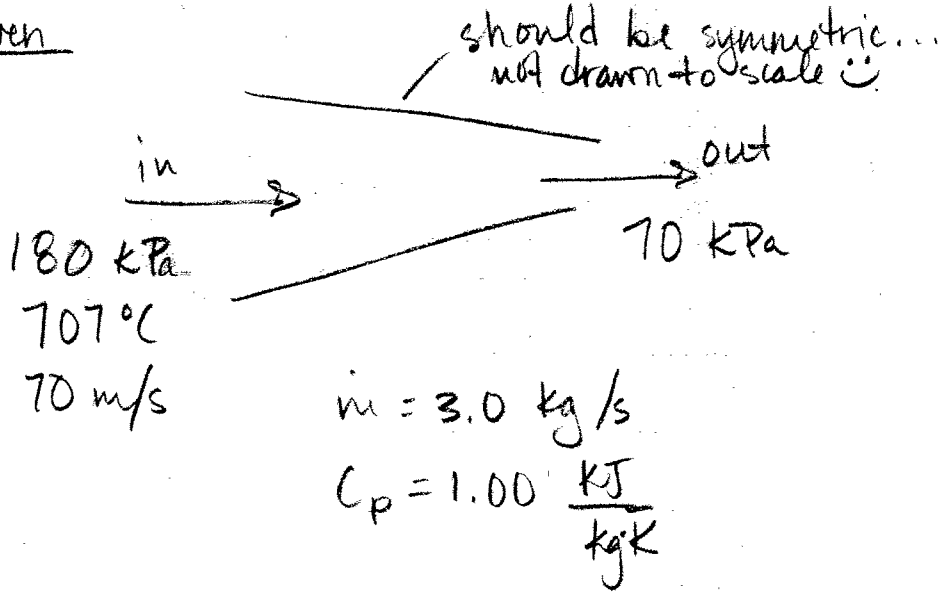 should be symmetric...
not drawn to scale
in
out
180 kPa
707°C
70 m/s
70 kPa
ṁ = 3.0 kg/s
Cp = 1.00 KJ
kgK